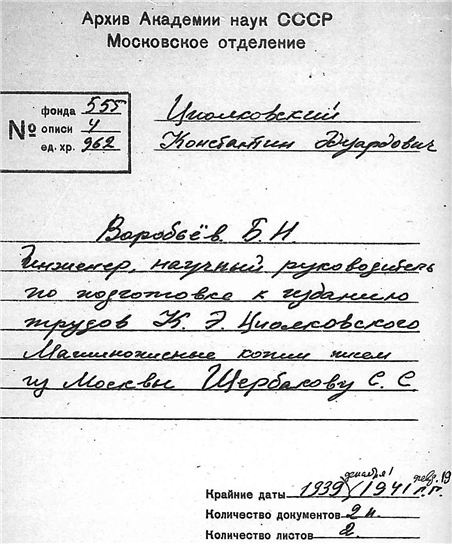 Архив Академии наук СССР
Московское отделение
№
фонда 555
описи 4
ед. хр. 962
Циолковский
Константин Эдуардович
Воробьёв Б. Н.
Инженер, научный руководитель
по подготовке к изданию
трудов К. Э. Циолковского
Машинописные копии писем
из Москвы Щербакову С. С
декабря
Крайние даты 1939 1941 г.г.
Количество документов 2
Количество листов 2.